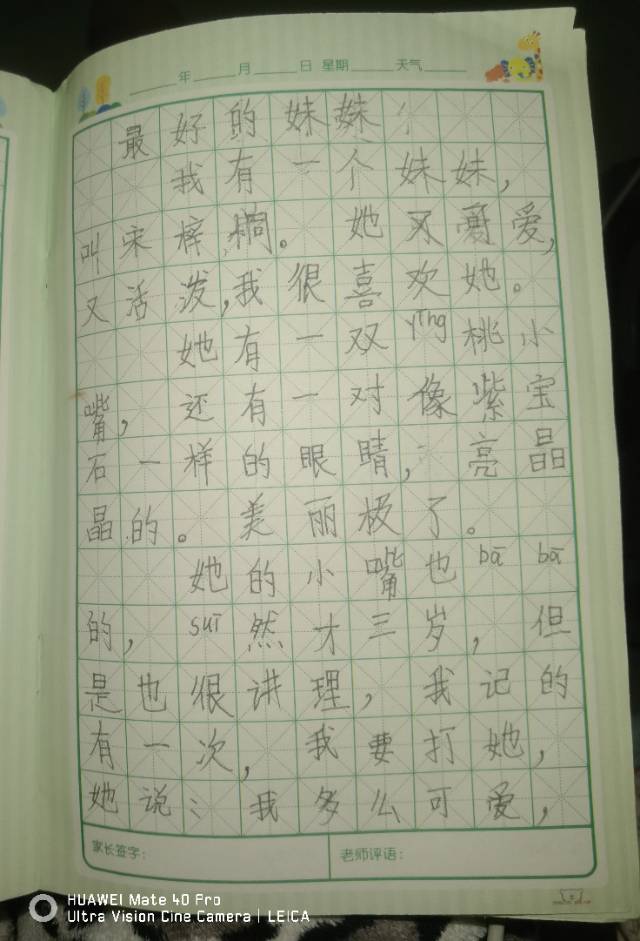 年 月 日 星期 天气
最好的妹妹
我有一个妹妹，
叫宋梓桐。她又可爱，
又活泼，我很喜欢她。
她有一双yīng桃小
嘴，还有一对像紫宝
石一样的眼睛，亮晶
晶的。美丽极了。
她的小嘴也bā bā
的，suī然才三岁，但
是也很讲理，我记的
有一次，我要打她，
她说：我多么可爱，
家长签字：
老师评语：
HUAWEI Mate 40 Pro
Ultra Vision Cine Camera | LEICA